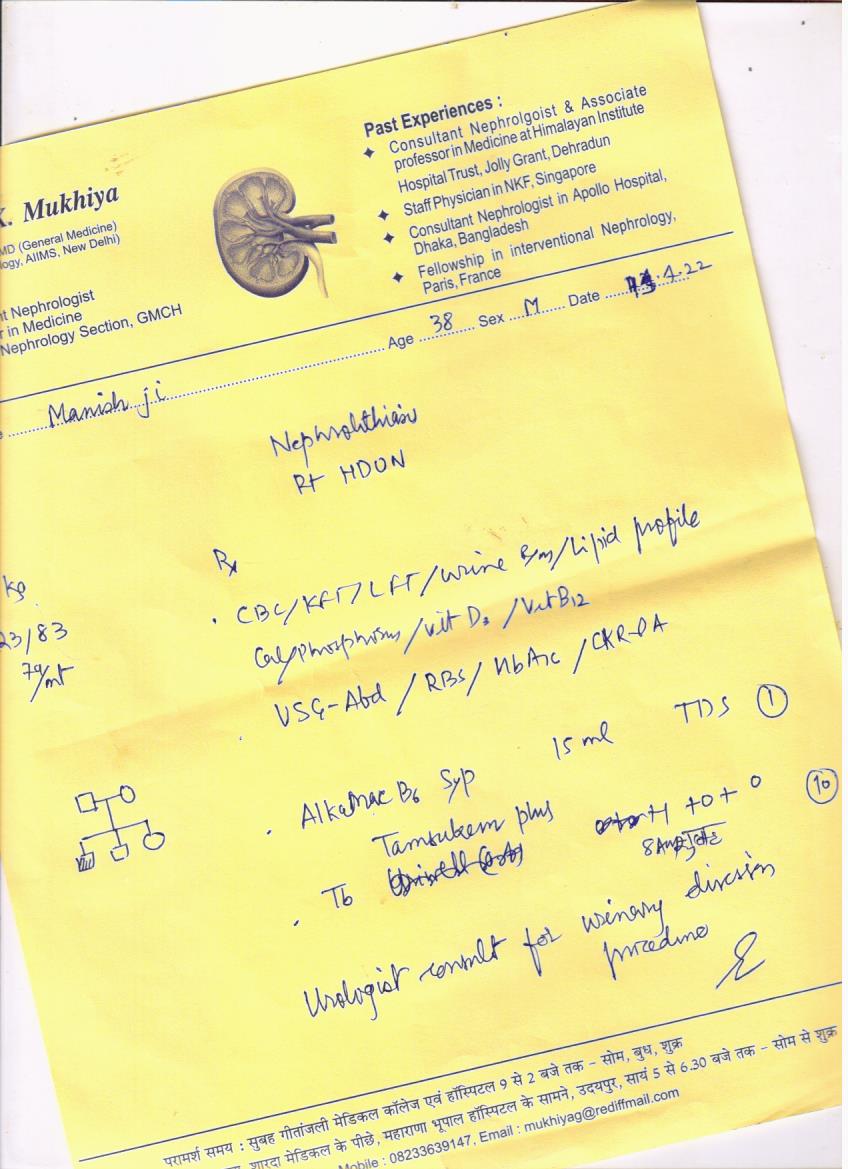 K. Mukhiya
MD (General Medicine)
ogy, AIIMS, New Delhi)
nt Nephrologist
r in Medicine
Nephrology Section, GMCH
Past Experiences :
Consultant Nephrolgoist & Associate
professor in Medicine at Himalayan Institute
Hospital Trust, Jolly Grant, Dehradun
Staff Physician in NKF, Singapore
Consultant Nephrologist in Apollo Hospital,
Dhaka, Bangladesh
Fellowship in interventional Nephrology,
Paris, France
Manish ji Age 38 Sex M Date
Nephrolithiasis
Rt HDUN
kg
23/83
79/mt
Rx
CBC/KFT/LFT/Urine R/m/Lipid profile
Cal/Phosphorus/Vit D3/Vit B12
USG-Abd / RBS / HbA1c / CXR-PA
Alkamac B6 Syp 15 ml TDS 1
Tamsukem plus 10
Tb
Urologist consult for urinary diversion
procedure
परामर्श समय : सुबह गीतांजली मेडिकल कॉलेज एवं हॉस्पिटल 9 से 2 बजे तक – सोम, बुध, शुक्र
शारदा मेडिकल के पीछे, महाराणा भूपाल हॉस्पिटल के सामने, उदयपुर, सायं 5 से 6.30 बजे तक – सोम से शुक्र
Mobile : 08233639147, Email : mukhiyag@rediffmail.com